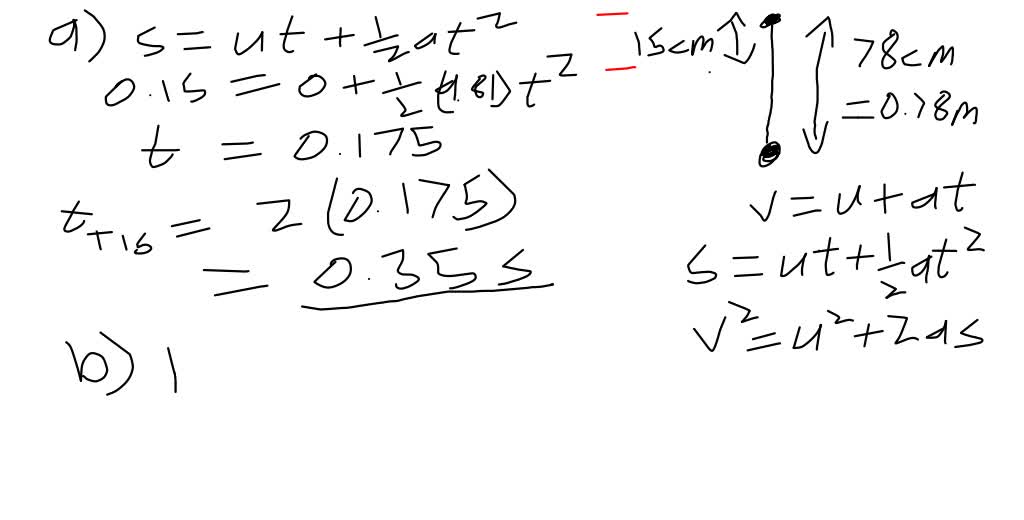 a) s = ut + 1/2 at²
0.15 = 0 + 1/2 (9.81) t²
t = 0.175
t+15 = 2 (0.175)
= 0.35 s
b) |
15cm
78cm
= 0.78m
v = u + at
s = ut + 1/2 at²
v² = u² + 2as